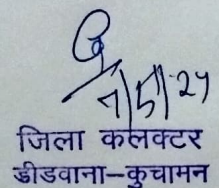 7/5/24
जिला कलक्टर
डीडवाना-कुचामन